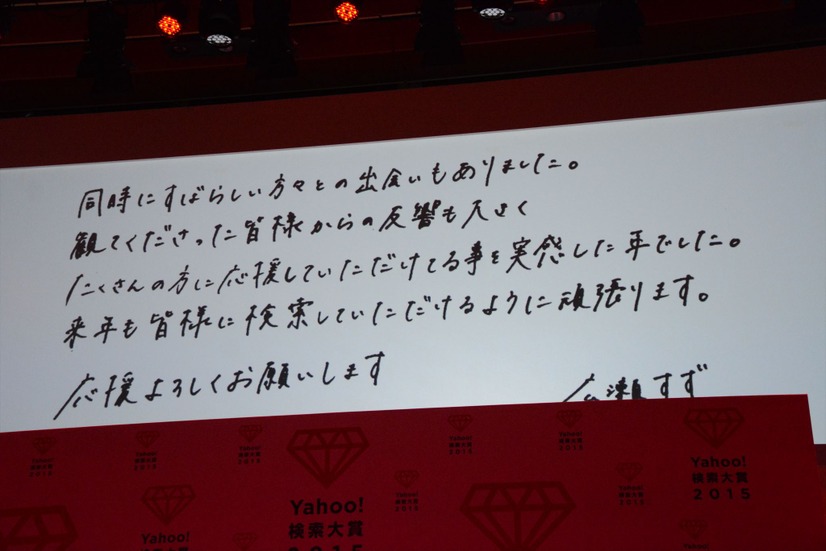 同時にすばらしい方々との出会いもありました。
観てくださった皆様からの反響も大きく
たくさんの方に応援していただけてる事を実感した年でした。
来年も皆様に検索していただけるように頑張ります。
応援よろしくお願いします
広瀬すず
Yahoo!
検索大賞
2015
Yahoo!
検索大賞
2015
Yahoo!
検索大賞
2015
Yahoo!
検索大賞
2015
Yahoo!
検索大賞
2015
Yahoo!
検索大賞
2015
Yahoo!
検索大賞
2015
Yahoo!
検索大賞